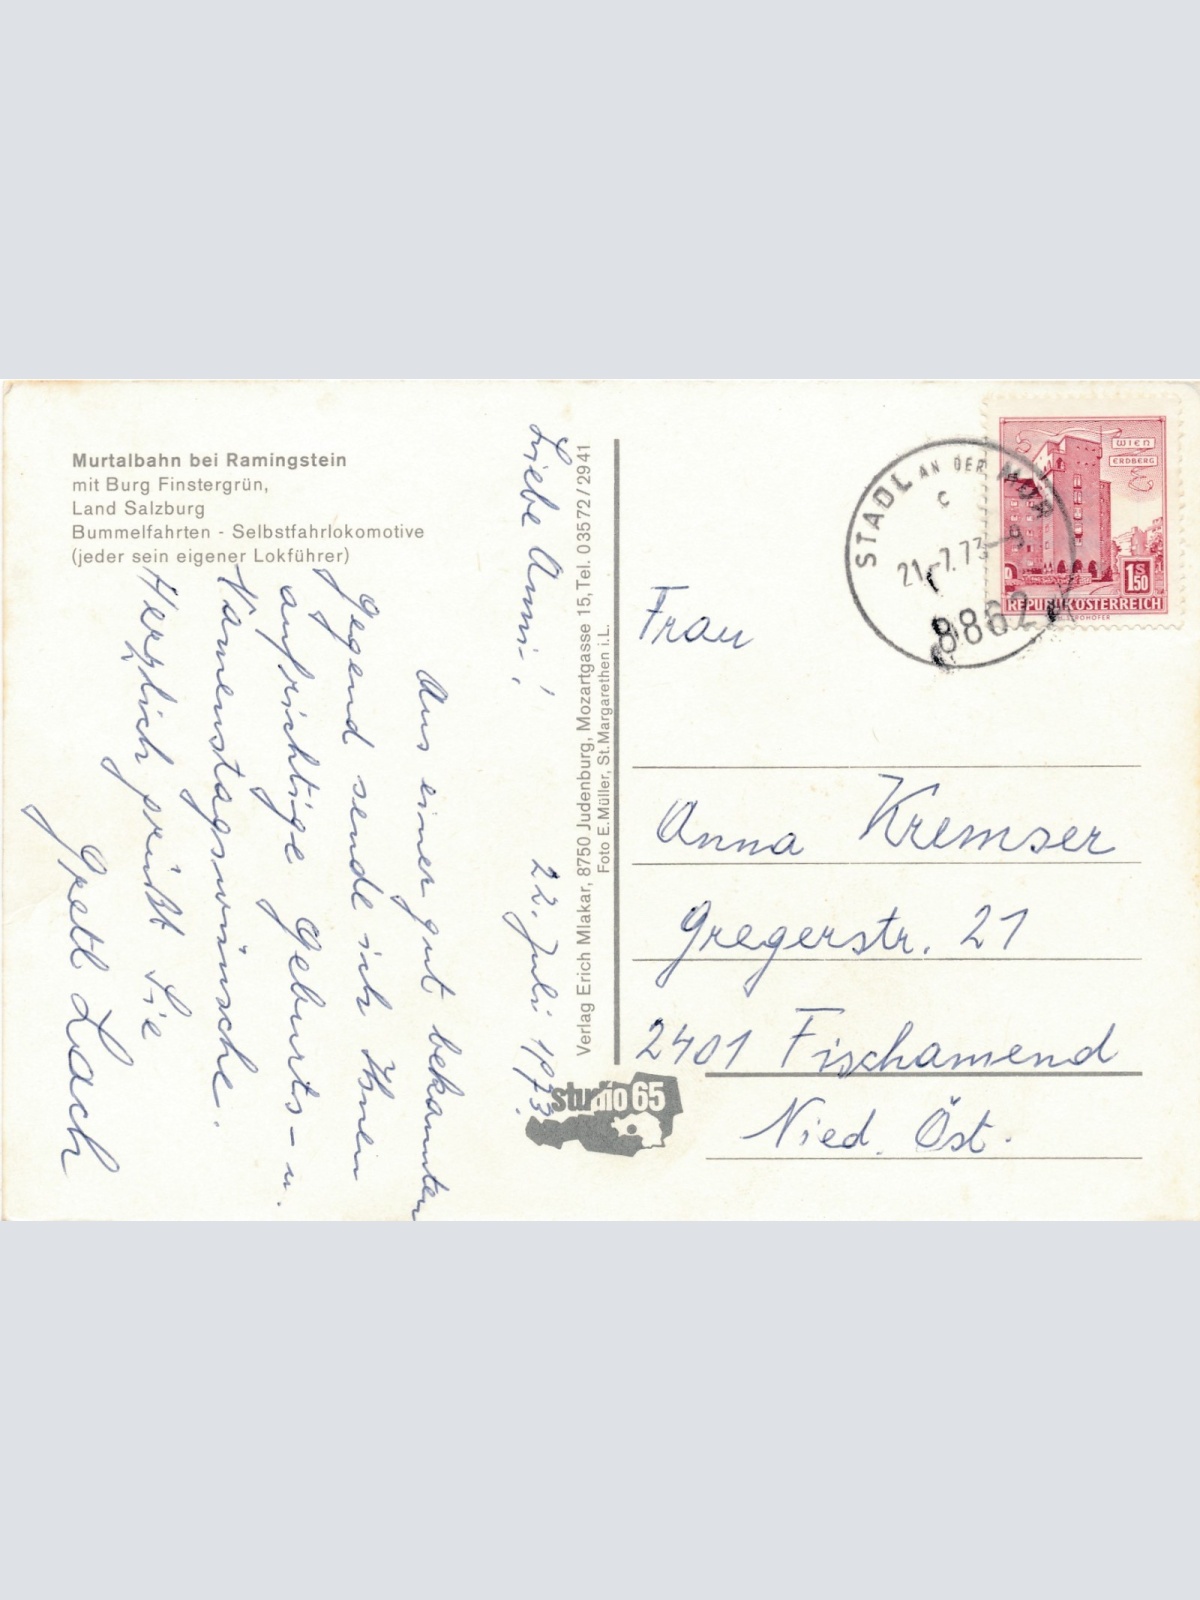 Murtalbahn bei Ramingstein
mit Burg Finstergrün,
Land Salzburg
Bummelfahrten - Selbstfahrlokomotive
(jeder sein eigener Lokführer)
Liebe Anni!
22. Juli 1973.
Aus einer gut bekannten
Gegend sende ich Ihnen
aufrichtige Geburts- u.
Namenstagswünsche.
Herzlich grüßt Sie
Gretl Lach
Verlag Erich Mlakar, 8750 Judenburg, Mozartgasse 15, Tel. 03572/2941
Foto E.Müller, St.Margarethen i.L.
studio 65
STADL AN DER MUR
c
21.-7.73-9
8862
WIEN
ERDBERG
1S50
REPUBLIK ÖSTERREICH
Frau
Anna Kremser
Gregerstr. 21
2401 Fischamend
Nied. Öst.